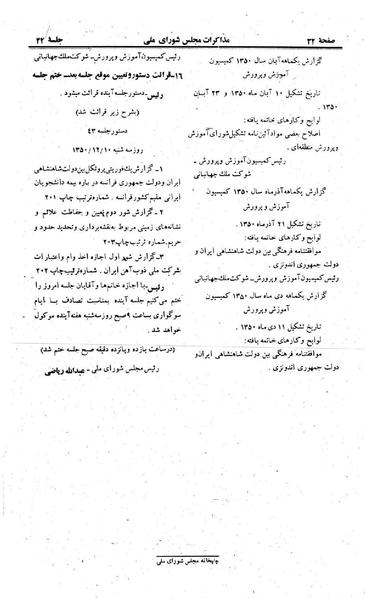 صفحهٔ ۳۲
مذاکرات مجلس شورای ملی
جلسهٔ ۴۲
گزارش یکماهه آبان سال ۱۳۵۰ کمیسیون
آموزش و پرورش
تاریخ تشکیل ۱۰ آبان ماه ۱۳۵۰ و ۲۳ آبان
۱۳۵۰ .
لوایح و کارهای خاتمه یافته:
اصلاح بعضی مواد آئین‌نامه تشکیل شورای آموزش
و پرورش منطقه‌ای.
رئیس کمیسیون آموزش و پرورش -
شوکت ملک جهانبانی
گزارش یکماهه آذرماه سال ۱۳۵۰ کمیسیون
آموزش و پرورش
تاریخ تشکیل ۲۱ آذرماه ۱۳۵۰ .
لوایح و کارهای خاتمه یافته:
موافقتنامه فرهنگی بین دولت شاهنشاهی ایران و
دولت جمهوری اندونزی .
رئیس کمیسیون آموزش و پرورش - شوکت ملک جهانبانی
گزارش یکماهه دی ماه سال ۱۳۵۰ کمیسیون
آموزش و پرورش
تاریخ تشکیل ۱۱ دی ماه ۱۳۵۰ .
لوایح و کارهای خاتمه یافته:
موافقتنامه فرهنگی بین دولت شاهنشاهی ایران و
دولت جمهوری اندونزی .
رئیس کمیسیون آموزش و پرورش - شوکت ملک جهانبانی
۱۶- قرائت دستور و تعیین موقع جلسه بعد - ختم جلسه
رئیس- دستور جلسه آینده قرائت میشود .
(بشرح زیر قرائت شد)
دستور جلسه ۴۳
روز سه شنبه ۱۳۵۰/۱۲/۱۰
۱- گزارش یک فوریتی پروتکل بین دولت شاهنشاهی
ایران و دولت جمهوری فرانسه در باره بیمه دانشجویان
ایرانی مقیم کشور فرانسه . شماره ترتیب چاپ ۲۰۱
۲- گزارش شور دوم زمین و حفاظت علائم و
نشانه‌های زمینی مربوط به نقشه‌برداری و تحدید حدود و
حریم. شماره ترتیب چاپ ۲۰۳
۳- گزارش شور اول اجازه اخذ وام و اعتبارات
شرکت ملی ذوب آهن ایران . شماره ترتیب چاپ ۲۰۲
رئیس- با اجازه خانم‌ها و آقایان جلسه امروز را
ختم میکنم جلسه آینده بمناسبت تصادف با ایام
سوگواری بساعت ۹ صبح روز سه‌شنبه هفته آینده موکول
خواهد شد .
(در ساعت یازده و پانزده دقیقه صبح جلسه ختم شد)
رئیس مجلس شورای ملی - عبدالله ریاضی
چاپخانه مجلس شورای ملی